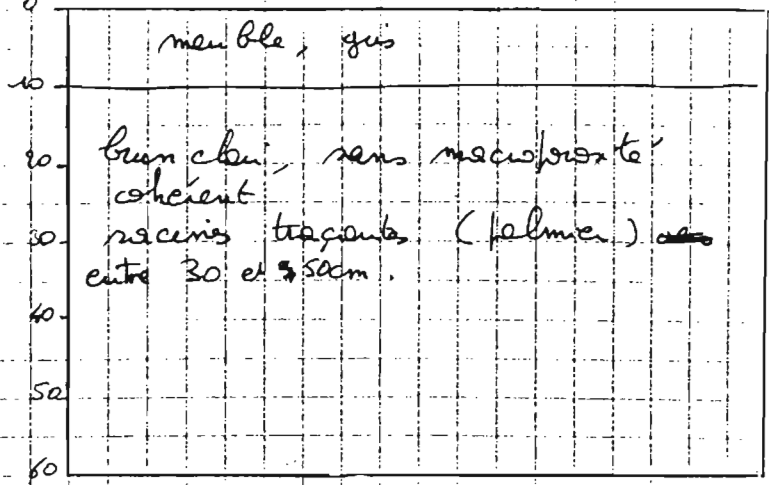 0
meuble, gris
10
20 brun clair, sans macroporosité
cohérent
30 racines traçantes (palmier)
entre 30 et 50cm.
40
50
60